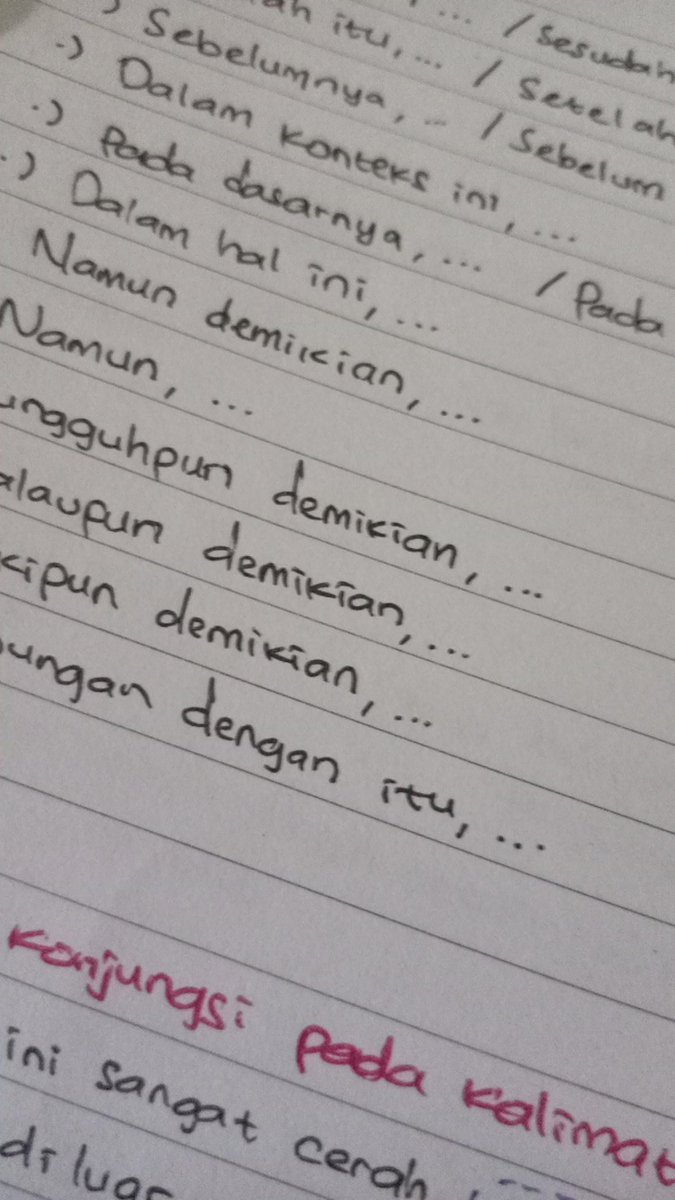 ... / Sesudah
itu, ... / Setelah
Sebelumnya, ... / Sebelum
·) Dalam konteks ini, ...
·) Pada dasarnya, ... / Pada
·) Dalam hal ini, ...
Namun demikian, ...
Namun, ...
ungguhpun demikian, ...
alaupun demikian, ...
kipun demikian, ...
ungan dengan itu, ...
Konjungsi pada kalimat
ini sangat cerah
diluar